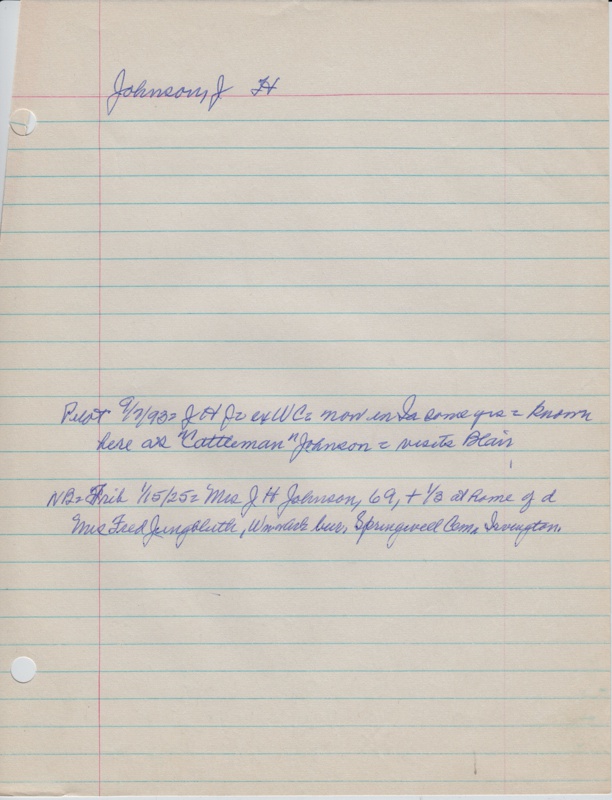 Johnson, J H
Pilot 9/7/93 = J H J = ex WC = now in Ia some yrs = known
here as "Cattleman" Johnson = visits Blair
NB = Trib 1/15/25 = Mrs J H Johnson, 69, + 1/3 at home of d
Mrs Fred Jungbluth, bur. Springwell Cem, Irvington.